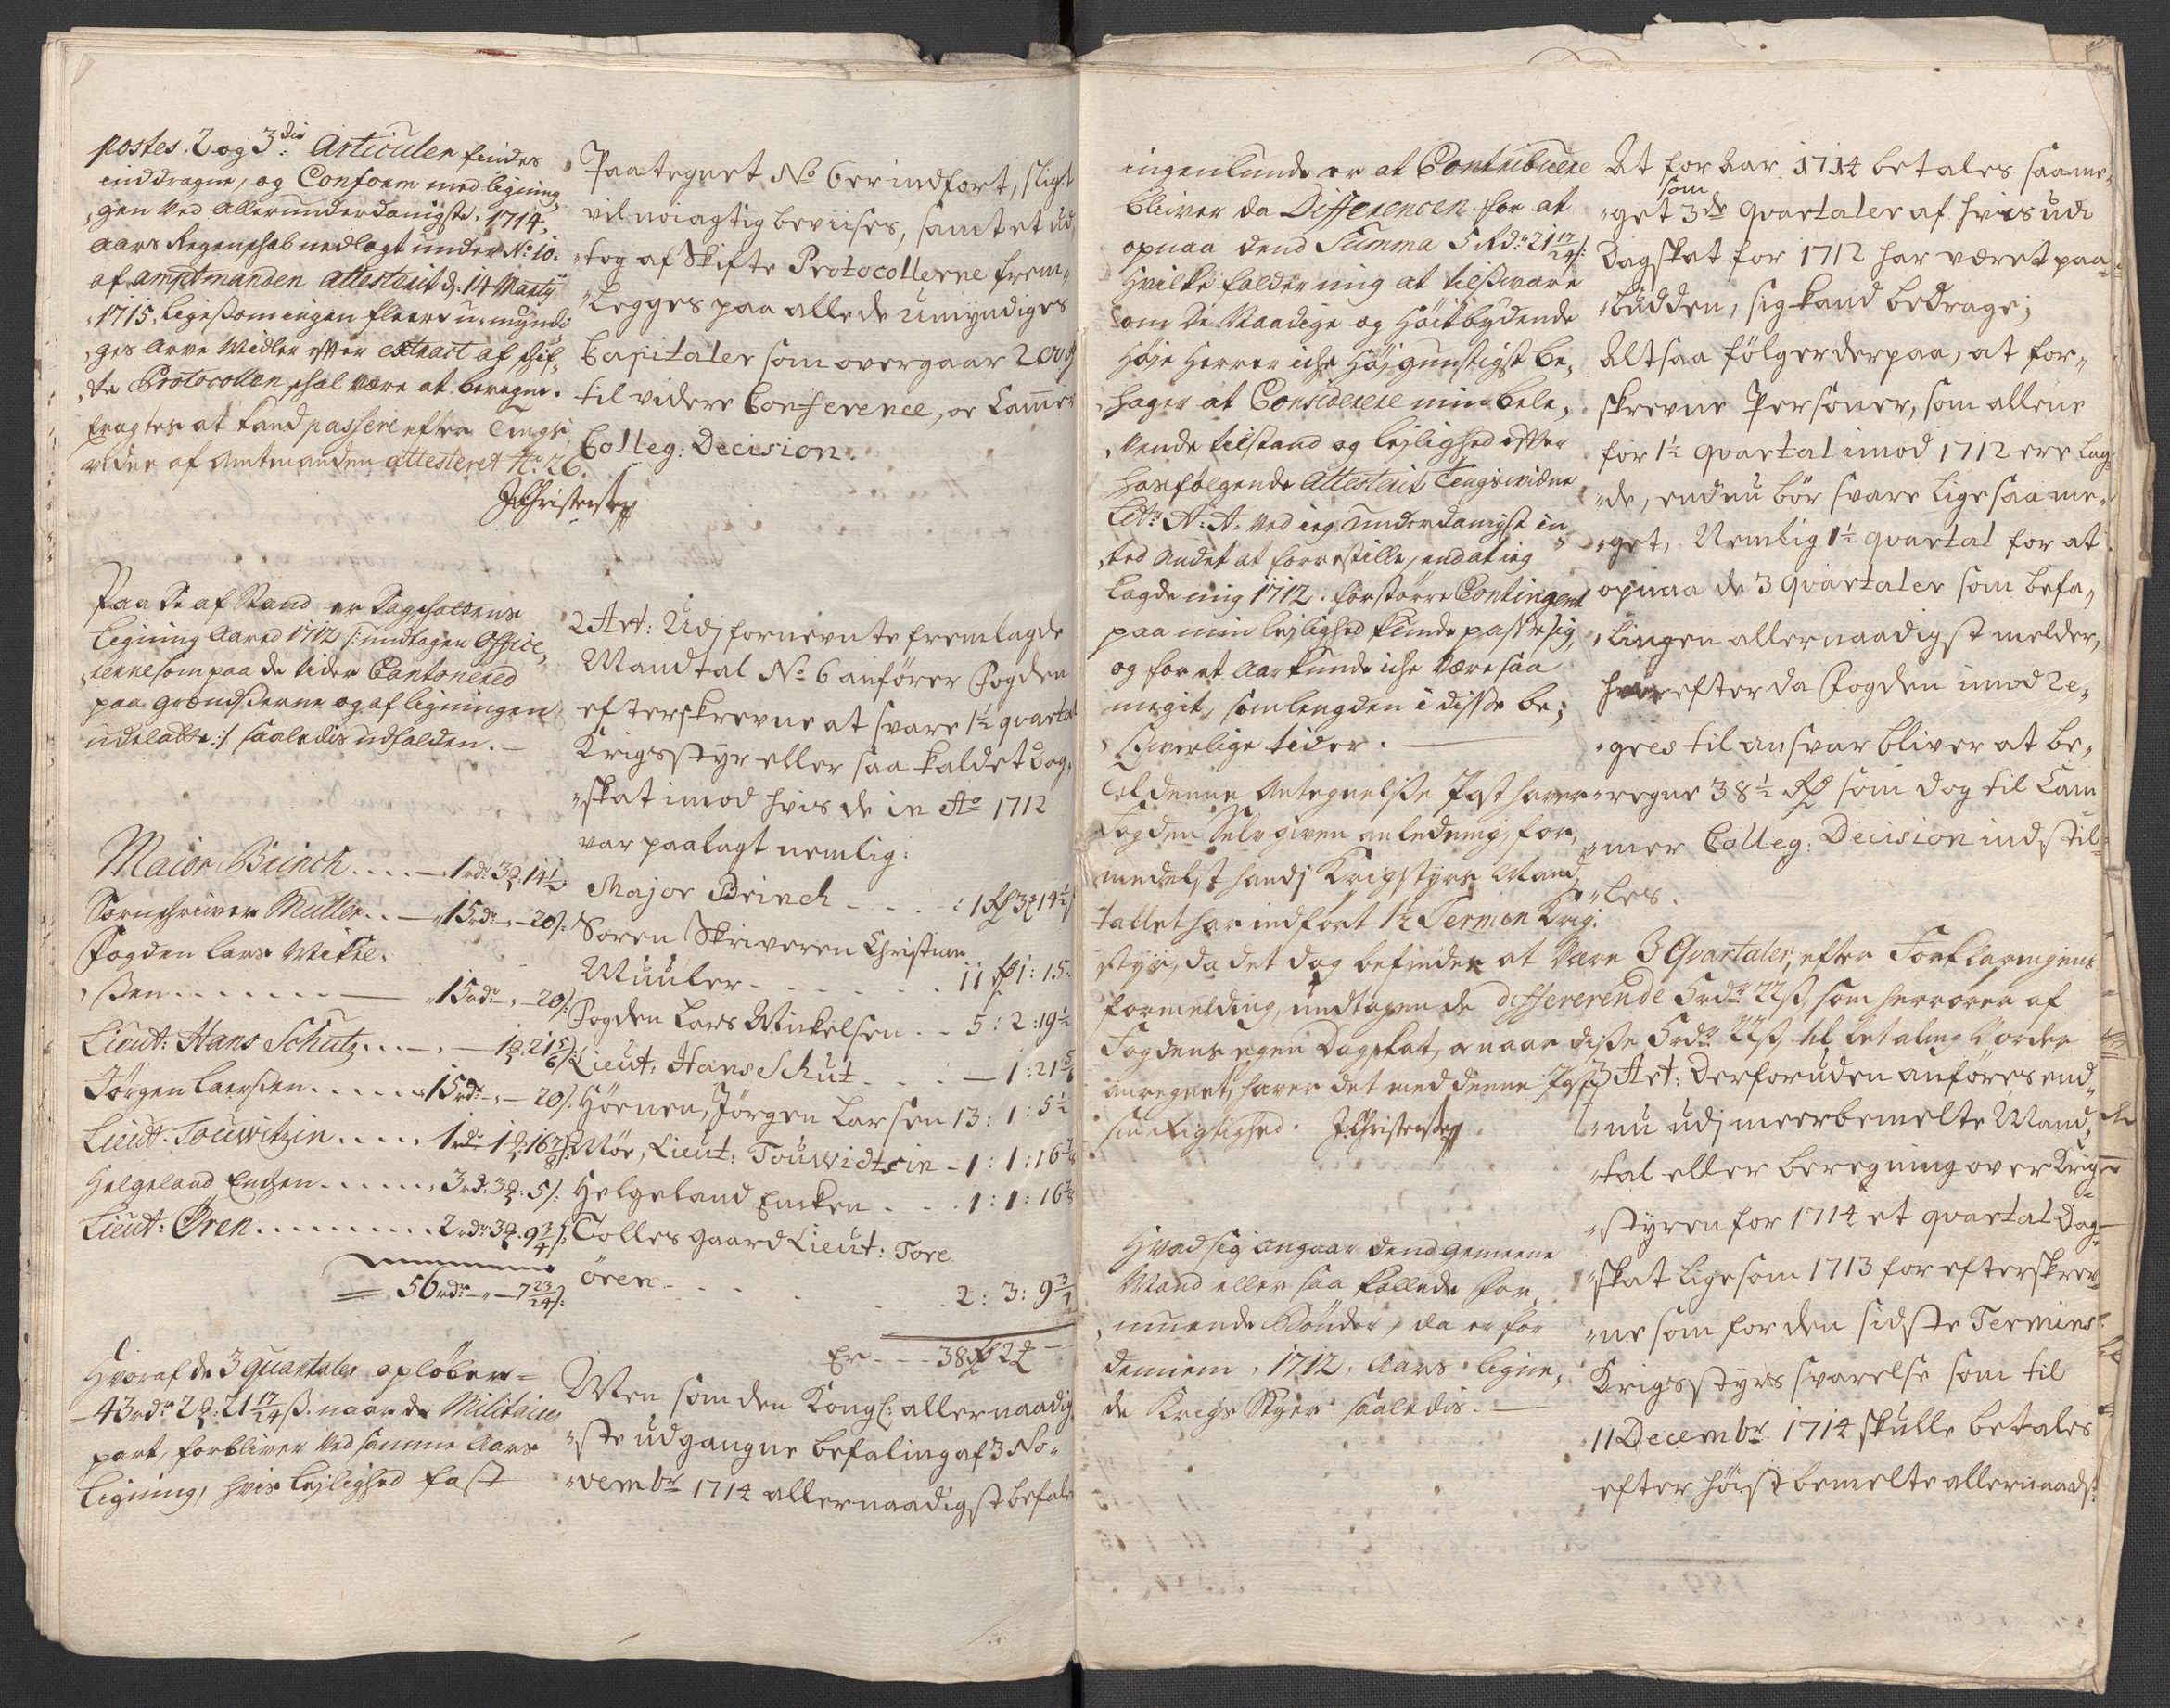 postes. 2 og 3die Articuler findes
inddragne, og Conform med ligning,
gen ved allerunderdanigste. 1714.
aars Regenschab nedlagt under No: 10.
af amptmanden attesterit d. 14 Marty
1715, ligesom ingen fleere u-myndi
ges arve Midler efter extract af schif,
te Protocollen, schal være at beregne.
Eragtes at kand passere efter Tings
vidne af Amtmanden attesteret No. 26.
JChristensen
Paa De af Stand er Dagschattens
Ligning Aared 1712 /: undtagen Office,
rerne som paa de tider Cantonered
paa grendserne og af ligningen
udeladte :/ saaledis udfalden. —
Maior Brinch . . . . — 1 rdr 3 ort 14½
Sornschriver Müller . . — 15 rdr — 20 s:
Fogden Lars Mikkel,
sen . . . . . . . — 15 rdr — 20 s:
Lieut: Hans Schutz . . . — 1 ort 21 5/6 s:
Jørgen Laersen . . . . . 15 rdr — 20 s:
Lieut. Touwitzin . . . . 1 rdr 1 ort 16 7/8 s:
Helgeland Enchen . . . . 3 rd: 3 ort: 5 s:
Lieut: Øren . . . . . . . 2 rdr 3 ort 9 3/4 s:
56 rdr — 7 23/24 s:
Hvoraf de 3 quartaler opløber =
43 rdr 2 ort: 21 17/24 s. naar de Militaire
part, forbliver ved samme Aars
ligning, hvis lejlighed fast
Paategnet No 6 er indført, sligt
vil nöiagtig beviises, samt et ud,
tog af Skifte Protocollerne frem,
legges paa alle de umyndiges
Capitaler som overgaar 200 rd
til videre Conference, or Cammer
Colleg: Decision.
2 Art: Udj fornevnte fremlagde
Mandtal No 6 anfører Fogden
efterskrevne at svare 1½ quartal
Krigsstyr eller saa kaldet Dag,
skat imod hvis de in Ao 1712
var paalagt nemlig:
Major Brinch - - - - : 1 rd 3 ort 14½
Soren Skriveren Christian
Muuler - - - - - - 11 rd 1: 15.
Fogden Lars Mickelsen - - 5: 2: 19½
Lieut: Hans Schut - - - — 1: 21 5/6
Hörnen, Jörgen Larsen 13: 1: 5½
Mör, Lieut: Touwidtzin - 1: 1: 16 7/8
Helgeland Encken - - - 1: 1: 16 7/8
Tolles gaard Lieut: Tore
ören - - - - - - 2: 3: 9 3/4
Er - - 38 rd 2 ort —
Men som den Kongl: allernaadig
ste udgangne befaling af 3 No,
vembr 1714 allernaadigst befaler
ingenlunde er at Contribuere
bliver da Differencen for at
opnaa dend Summa 5 Rdr: 21 17/24 s:
Hvilke falder mig at tilsvare
om De Naadige og Höitbydende
Høje Herrer iche Højgunstigst be,
hager at Considerere min bele,
vende tilstand og lejlighed efter
hosfølgende Attesterit Tingsvidne
Litr: A: A. ved ieg underdanigst in,
ted andet at forrestille, end at ieg
lagde mig 1712. for større Contingent
paa min lejlighed kunde passe sig,
og for et aar kunde iche være saa
megit, som lengden i disse be,
sverlige tider. —
Til denne Antegnelse Post haver
Fogden selv given anledning, for,
medelst hands Krigstyrs Mand,
tallet har indført 1½ Termin Krig:
styr, da det dog befindes at være 3 Qvartaler, efter Forklaringens
formelding, undtagen de differerende 5 rdr 22 s, som herrører af
Fogdens egen Dagskat, og naar disse 5 rdr: 22 s, til betaling vorder
anregnet, haver det med denne Post
sin Rigtighed. JChristensen
Hvad sig angaar dend gemeene
Mand eller saa kallede for,
muende Bönder, da er for
dennem. 1712. Aars ligne,
de Krigs Styer saaledis. —
At for Aar. 1714 betales saa me,
get som 3de quartaler af hvis udi
Dagskat for 1712 har været paa,
budden, sig kand bedrage;
Altsaa fölger derpaa, at for,
skrevne Personer, som allene
for 1½ quartal imod 1712 ere lag,
de, endnu bör svare lige saa me,
get, Nemlig 1½ quartal for at
opnaa de 3 quartaler som befa,
lingen allernaadigst melder,
hvorefter da Fogden imod Re,
gres til ansvar bliver at be,
regne 38½ rd som dog til Cam
mer Colleg: Decision indstil,
les.
3 Art: Derforuden anföres end,
nu udj meerbemelte Mand,
tal eller beregning over Krigs
styren for 1714 et quartal Dag,
skat ligesom 1713 for efterskrev,
ne som for den sidste Termins
Krigsstyrs svarelse som til
11 Decembr 1714 skulle betales
efter höist bemelte allernaadst